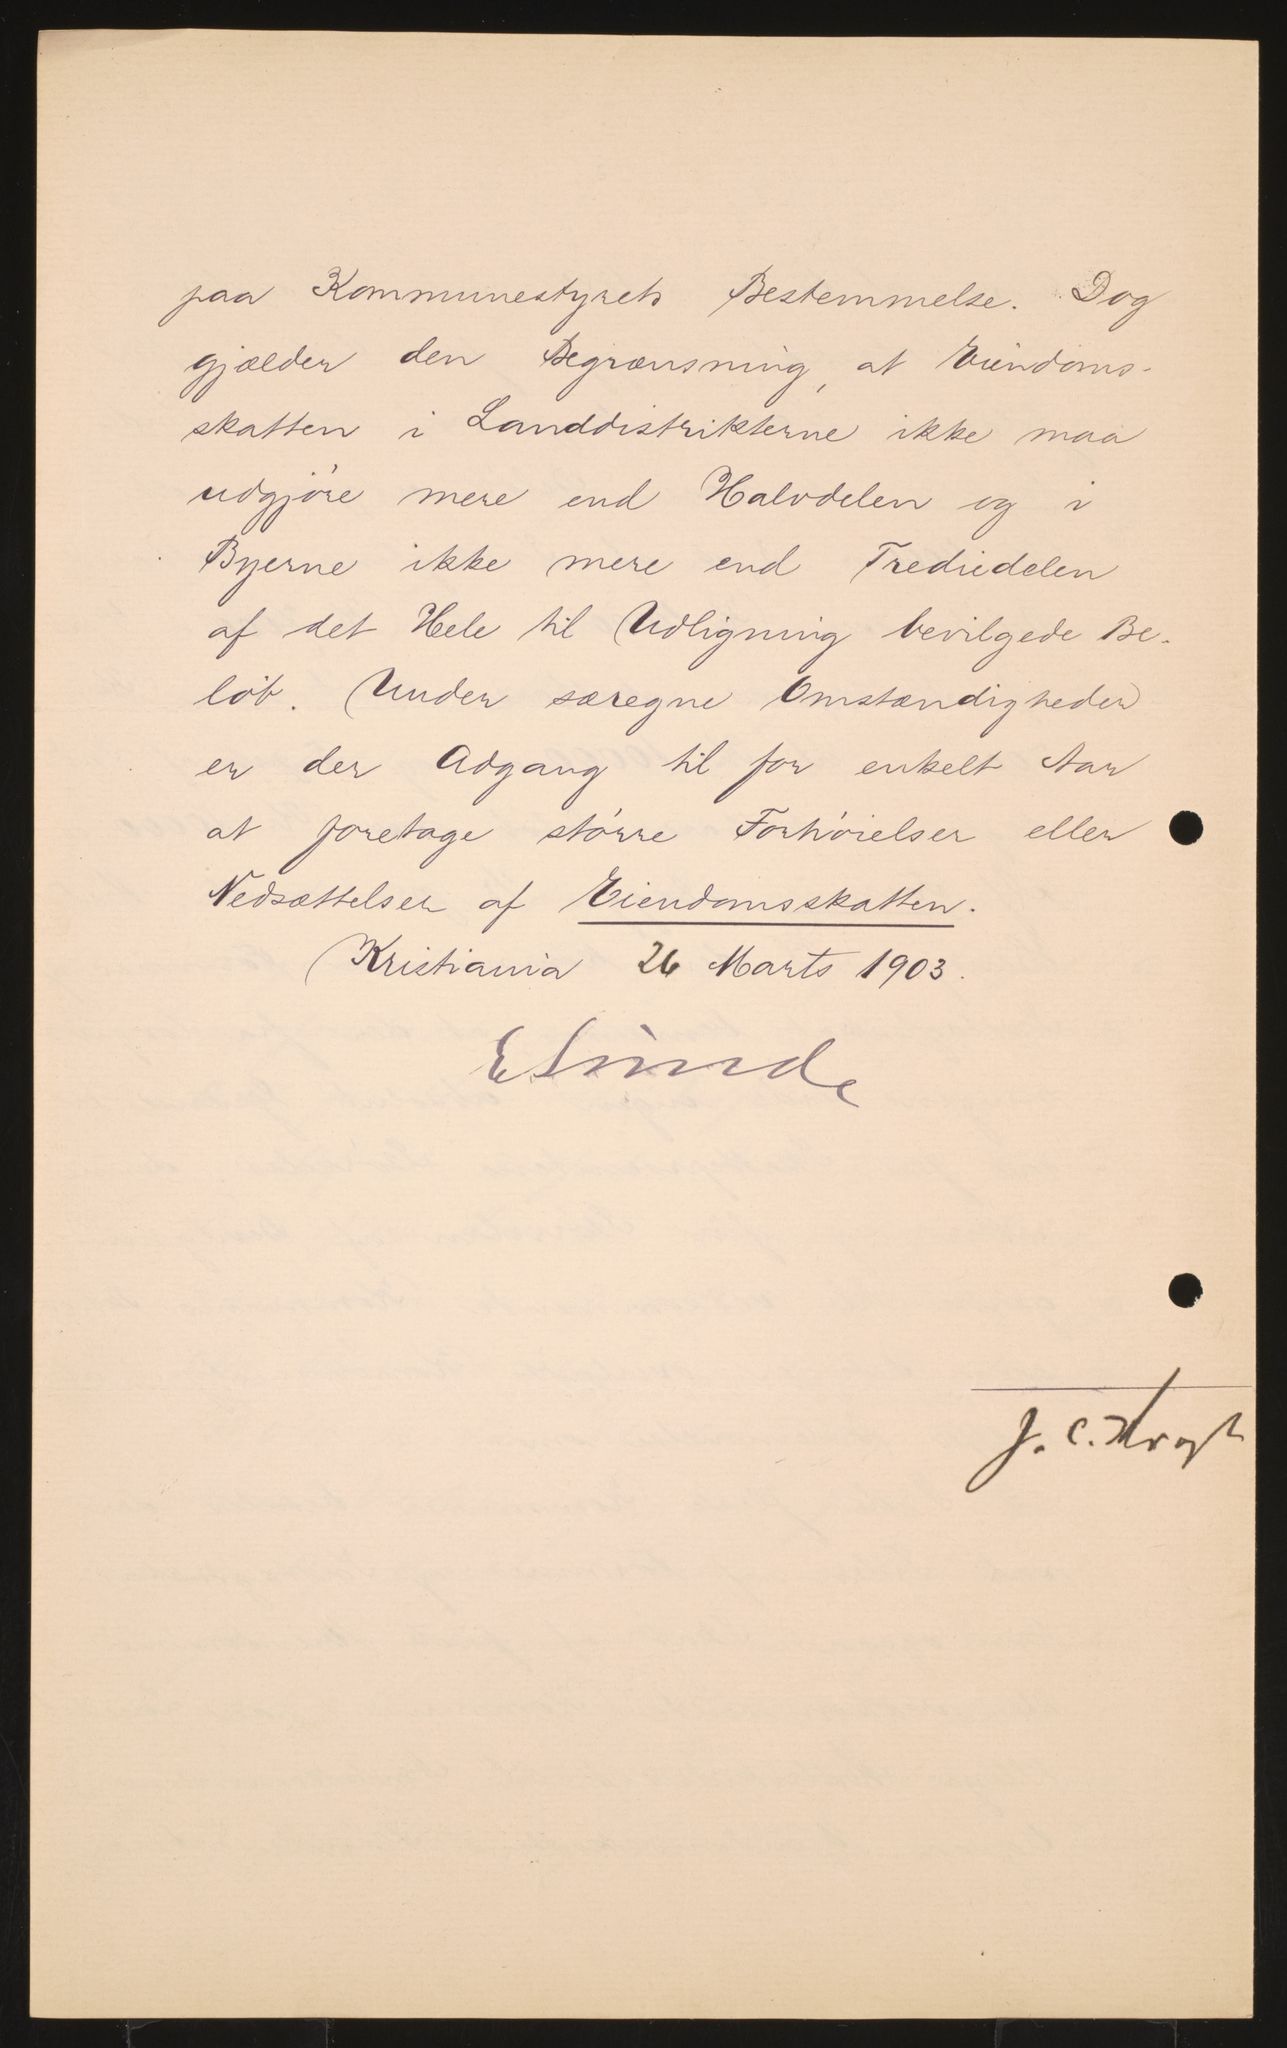 paa Kommunestyrets Bestemmelse. Dog
gjælder den Begrænsning, at Eiendoms-
skatten i Landdistrikterne ikke maa
udgjøre mere end Halvdelen og i
Byerne ikke mere end Trediedelen
af det Hele til Udligning bevilgede Be-
løb. Under særegne Omstændigheder
er der Adgang til for enkelt Aar
at foretage større Forhøielser eller
Nedsættelser af Eiendomsskatten.
Kristiania 26 Marts 1903.
E Sunde
J. C. Krogh